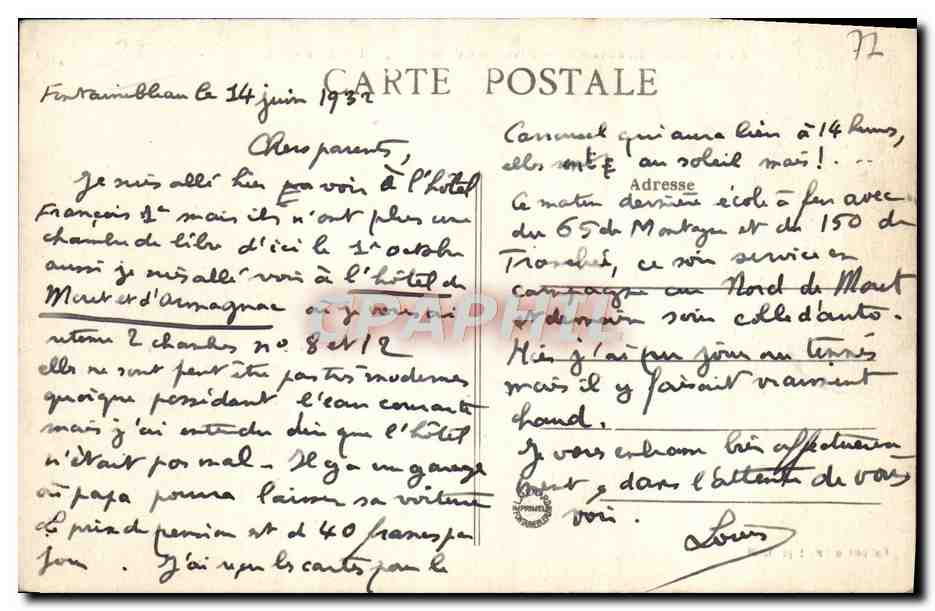 72
CARTE POSTALE
Fontainebleau le 14 juin 1932
Chers parents,
Je suis allé hier voir à l'hôtel
François 1er mais ils n'ont plus une
chambre de libre d'ici le 1er octobre
aussi je suis allé voir à l'hôtel de
Moret et d'Armagnac où je vous ai
retenu 2 chambres no 8 et 12
elles ne sont peut être pas très modernes
quoique possédant l'eau courante
mais j'ai entendu dire que l'hôtel
n'était pas mal - Il y a un garage
où papa pourra laisser sa voiture
Le prix de pension est de 40 francs par
jour. J'ai reçu les cartes pour le
Carrousel qui aura lieu à 14 heures,
elles sont au soleil mais! ...
Adresse
Ce matin dernière école à feu avec
du 65 de Montagne et du 150 de
Tranchée, ce soir service en
campagne au Nord de Moret
et demain soir colle d'auto.
Hier j'ai pu jouer au tennis
mais il y faisait vraiment
chaud.
Je vous embrasse bien affectueuse
ment, dans l'attente de vous
voir.
Louis
CPAPHIL